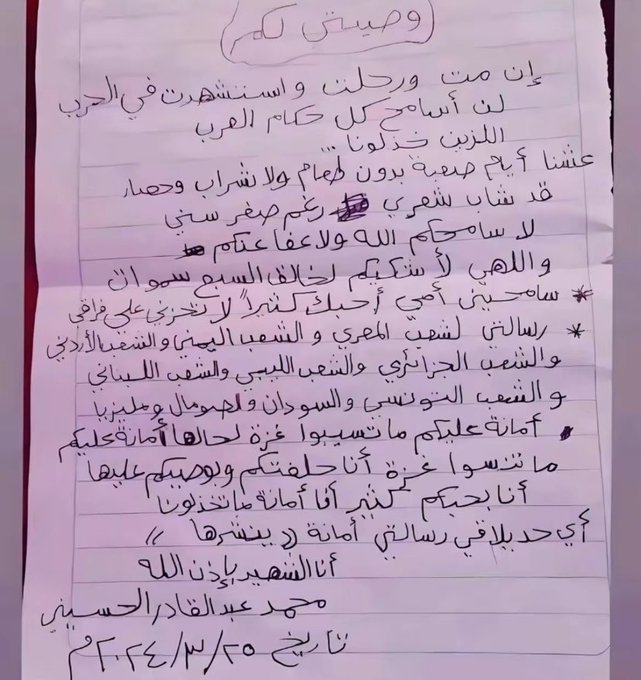 وصيتي لكم
إن مت ورحلت واستشهدت في الحرب
لن أسامح كل حكام العرب
اللزين خذلونا...
عشنا أيام صعبة بدون طعام ولا شراب وحصار
قد شاب شعري رغم صغر سني
لا سامحكم الله ولا عفا عنكم
واللهي لأشكيكم لخالق السبع سموات
* سامحيني أمي أحبك كثيراً لا تحزني علي فراقي
* رسالتي لشعب المصري والشعب اليمني والشعب الأردني
والشعب الجزائري والشعب الليبي والشعب اللبناني
والشعب التونسي والسودان ولصومال ومليزيا
أمانة عليكم ما تسيبوا غزة لحالها أمانة عليكم
ما تنسوا غزة أنا حلفتكم وبوصيكم عليها
أنا بحبكم كثير أنا أمانة ما تخذلونا
أي حد يلاقي رسالتي أمانة (( ينشرها ))
أنا الشهيد بإذن الله
محمد عبد القادر الحسيني
تاريخ ٢٠٢٤/٣/٢٥م